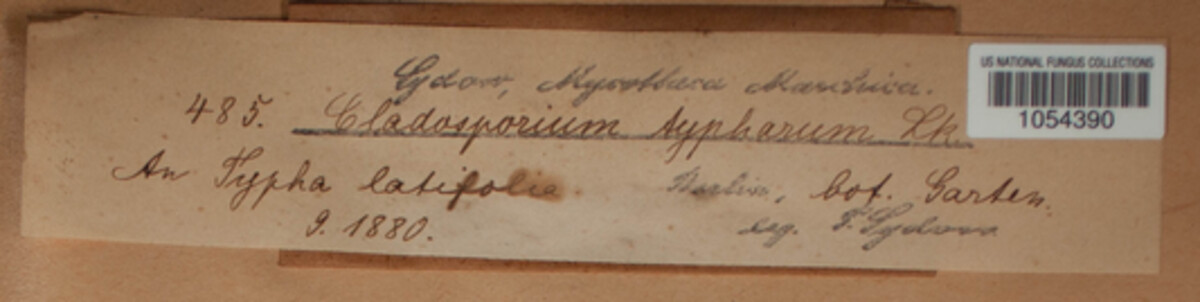 Sydow, Mycotheca Marchica.
485. Cladosporium typharum Lk.
An Typha latifolia. Berlin, bot. Garten.
9. 1880. leg. P. Sydow
US NATIONAL FUNGUS COLLECTIONS
1054390